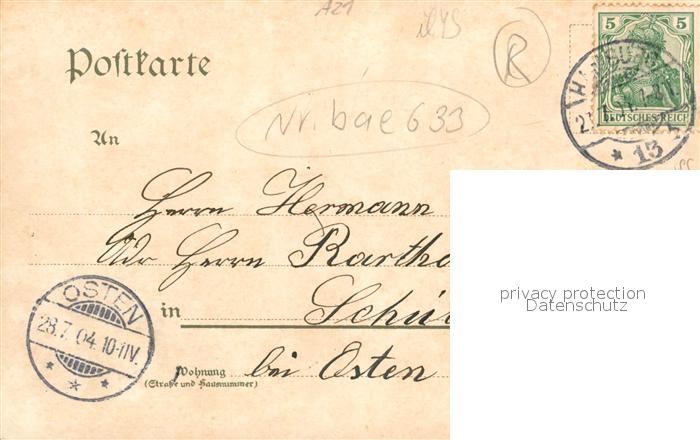 A21
Postkarte
R
5 5
DEUTSCHES REICH
HAMBURG
* 13
Nr. bae 633
An
Herrn Hermann
Adr Herrn Kartho
in Schü
Wohnung
(Straße und Hausnummer)
bei Osten
OSTEN
28.7.04.10-11V.
* * *
privacy protection
Datenschutz